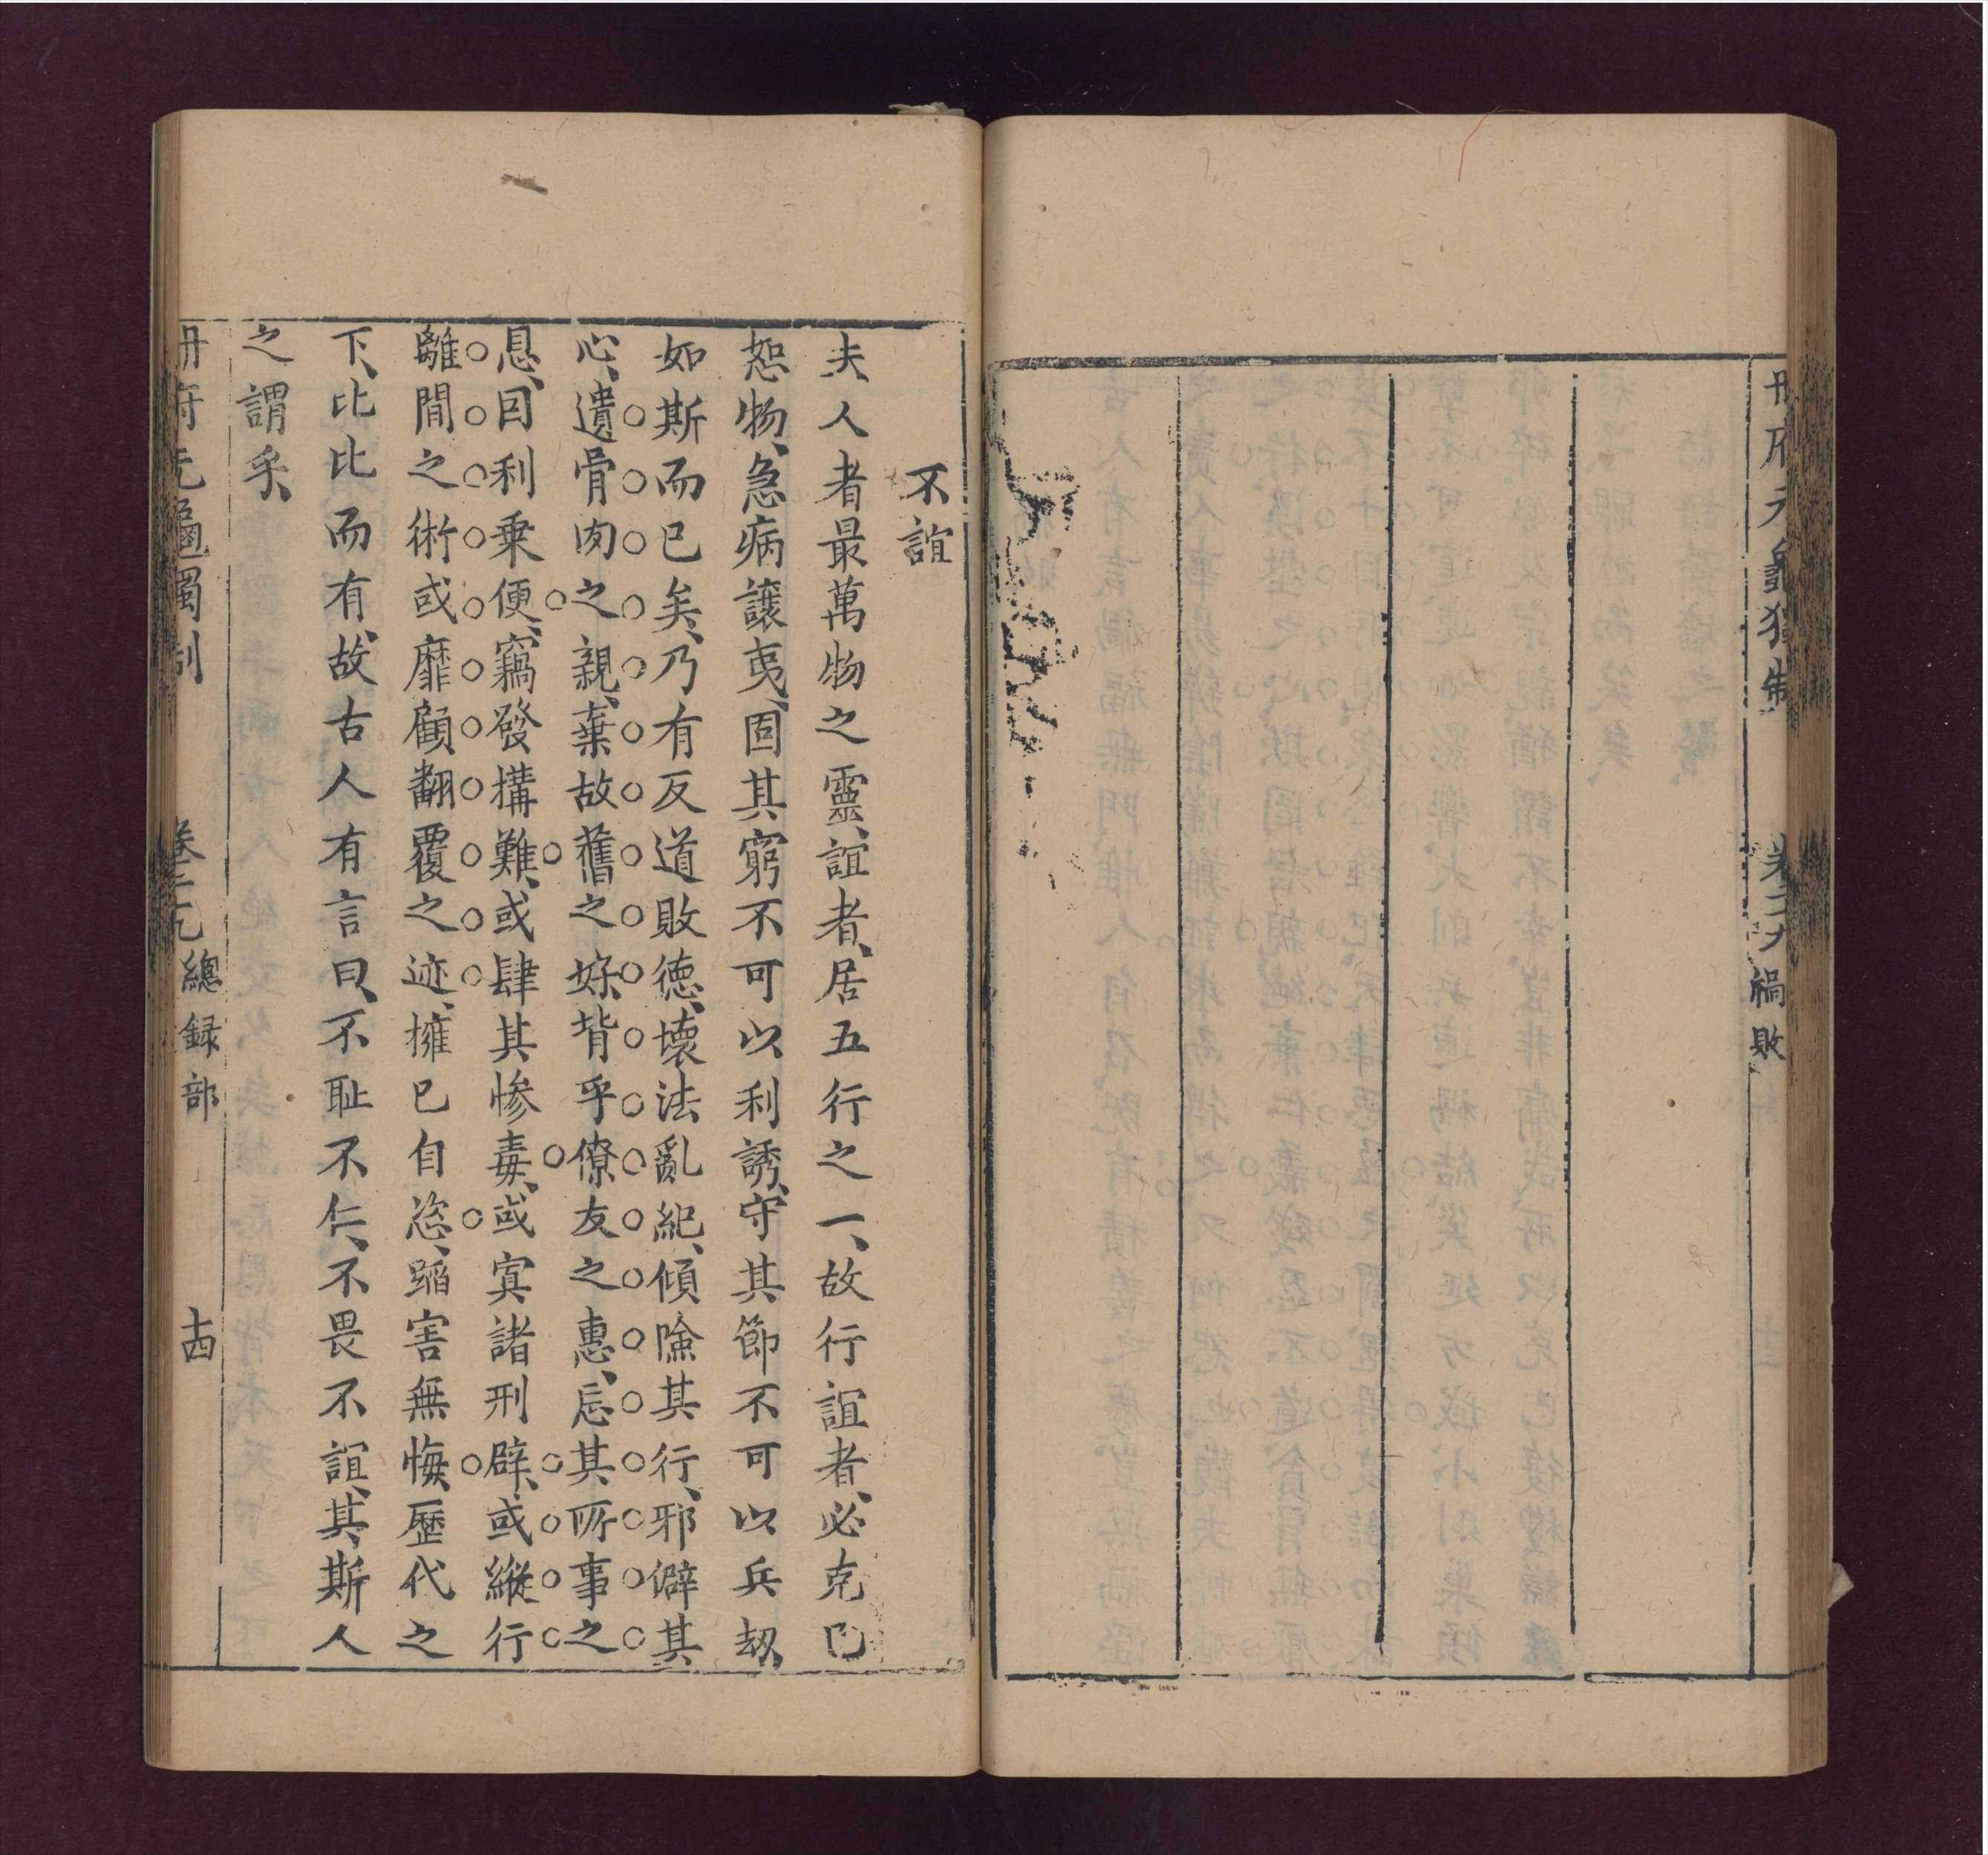 冊府元龜獨制 卷二九 禍敗
不誼
夫人者最萬物之靈、誼者、居五行之一、故行誼者、必克已
恕物、急病讓夷、固其窮不可以利誘、守其節不可以兵劫、
如斯而已矣、乃有反道敗德、壞法亂紀、傾險其行、邪僻其
心、遺骨肉之親、棄故舊之好、背乎僚友之惠、忘其所事之
恩、因利乘便、竊發搆難、或肆其慘毒、或寘諸刑辟、或縱行
離間之術或靡顧翻覆之迹、擁已自恣、蹈害無悔歷代之
下、比比而有、故古人有言曰、不恥不仁、不畏不誼、其、斯人
之謂乎、
冊府元龜獨制 卷二九 總録部 十四